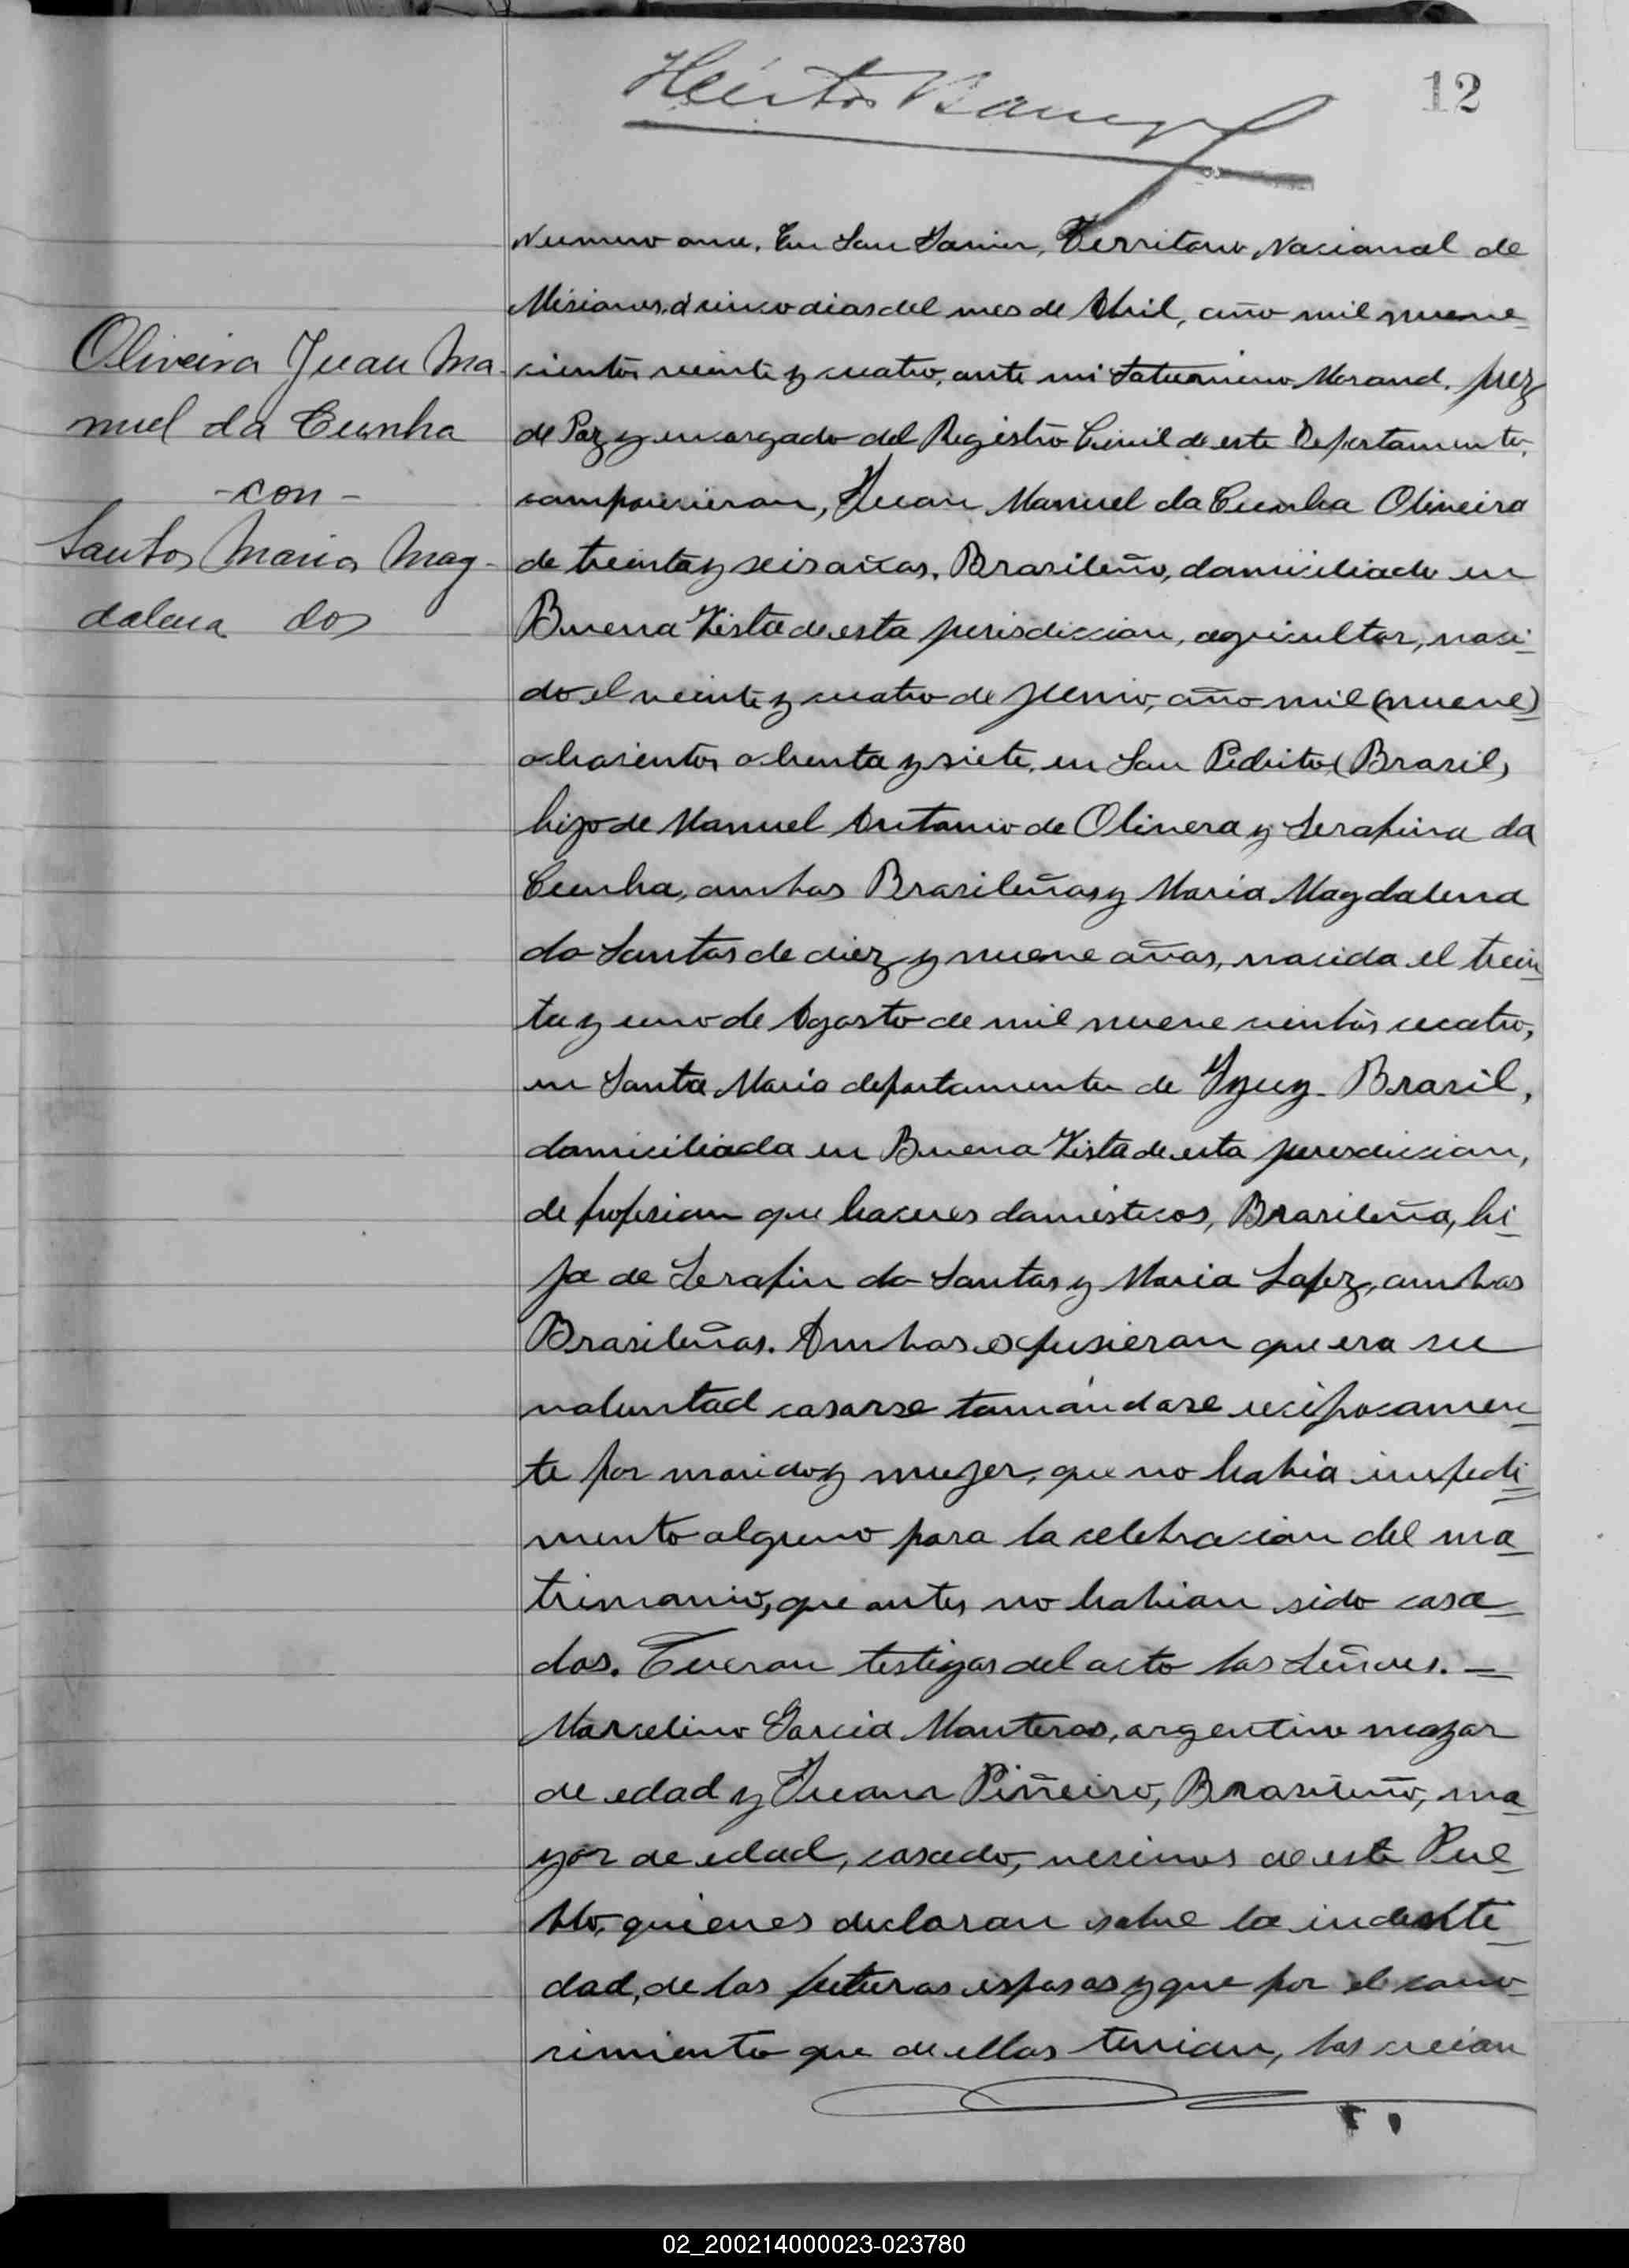 12
Numero once. En San Javier, Territorio Nacional de
Misiones, á cinco dias del mes de Abril, año mil nueve-
Oliveira Juan Ma-
cientos veinte y cuatro, ante mi Saturnino Morand, Juez
nuel da Cunha
de Paz y encargado del Registro Civil de este Departamento,
-con-
comparecieron, Juan Manuel da Cunha Oliveira
Santos Maria Mag-
de treinta y seis años, Brasileño, domiciliado en
dalena dos
Buena Vista de esta jurisdiccion, agricultor, naci-
do el veinte y cuatro de Junio, año mil (nueve)
ochosientos ochenta y siete, en San Pedrito (Brasil,
hijo de Manuel Antonio de Olivera y Serafina da
Cunha, ambos Brasileños y Maria Magdalena
do Santos de diez y nueve años, nacida el trein-
ta y uno de Agosto de mil nueve cientos cuatro,
en Santa Maria departamento de Yyuy - Brasil,
domiciliada en Buena Vista de esta jurisdiccion,
de profesion que haceres domésticos, Brasileña, hi-
ja de Serafin do Santos y Maria Lopez, ambos
Brasileños. Ambos expusieron que era su
voluntad casarse tomándose recipocamen-
te por marido y mujer, que no habia impedi-
mento alguno para la celebracion del ma-
trimonio, que antes no habian sido casa-
dos. Fueron testigos del acto los Señores. —
Marcelino Garcia Monteros, argentino mayor
de edad y Juan Piñeiro, Brasileño, ma-
yor de edad, casado, vecinos de este Pue-
blo, quienes declaran sobre la indenti-
dad, de los futuros esposos y que por el cono-
simiento que de ellos tenian, los creian
02_200214000023-023780